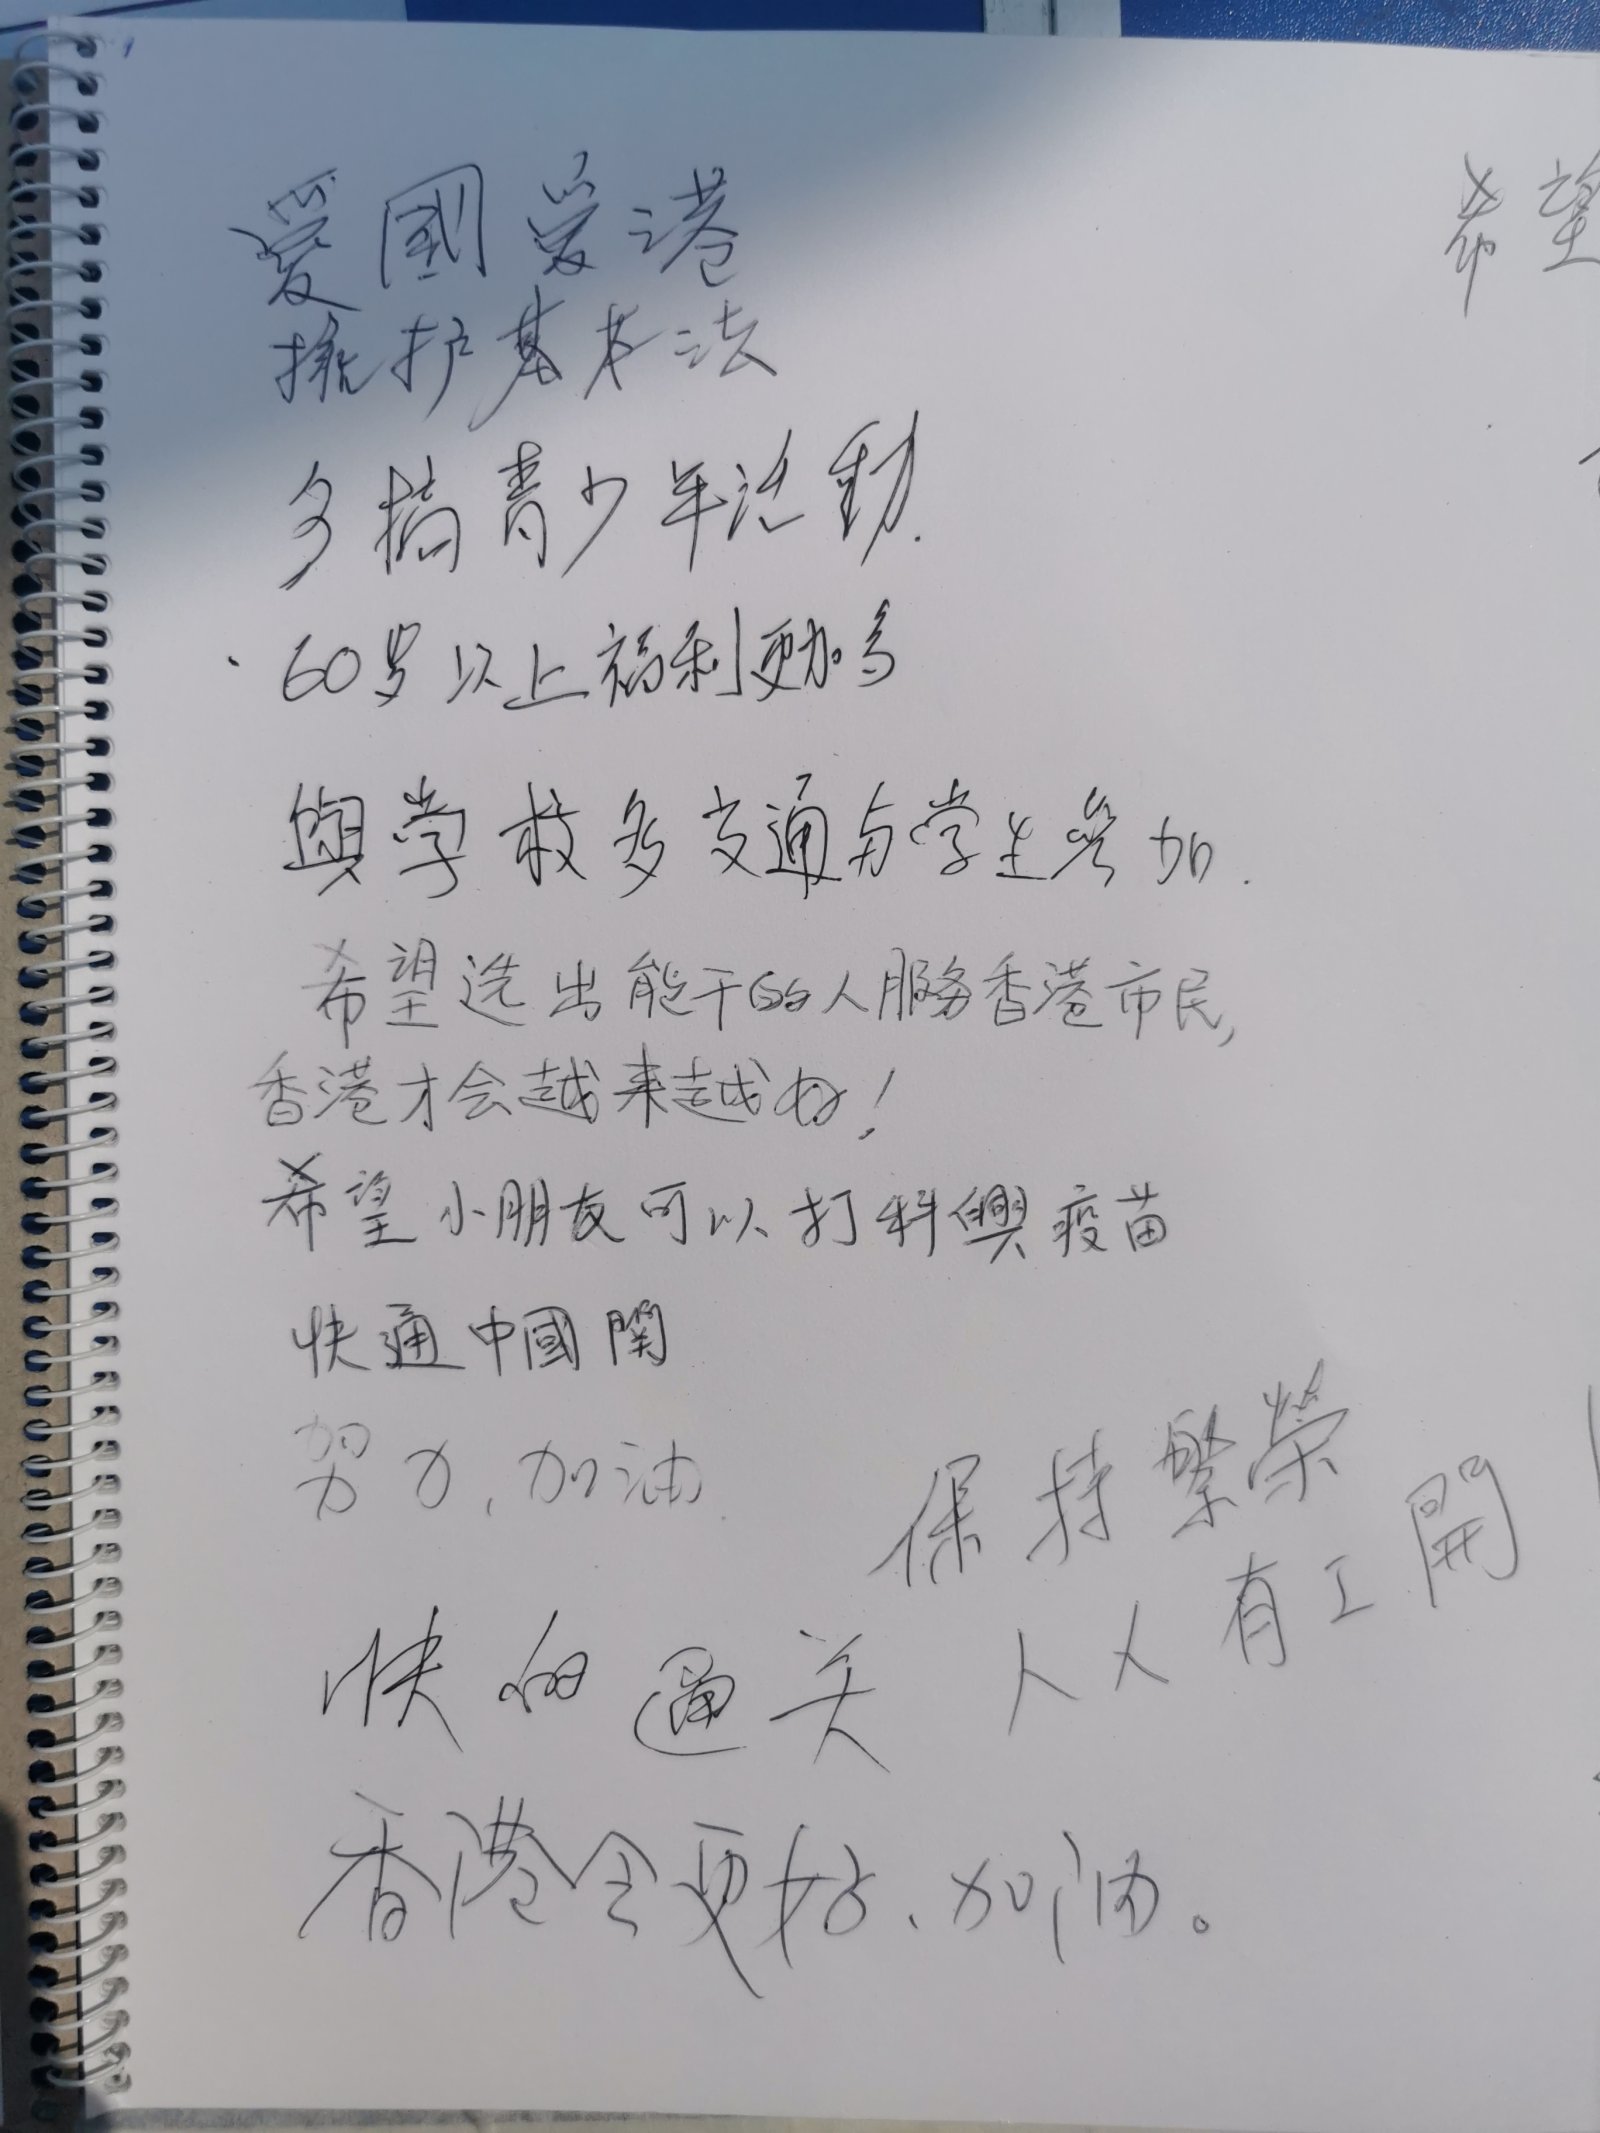 爱國爱港
擁护基本法
希望
多搞青少年活動.
60岁以上福利更加多
與学校多交通与学生参加.
希望选出能干的人服务香港市民,
香港才会越来越好！
希望小朋友可以打科興疫苗
快通中國関
努力,加油.
保持繁榮
人人有工開
快的通关
香港会更好、加油。